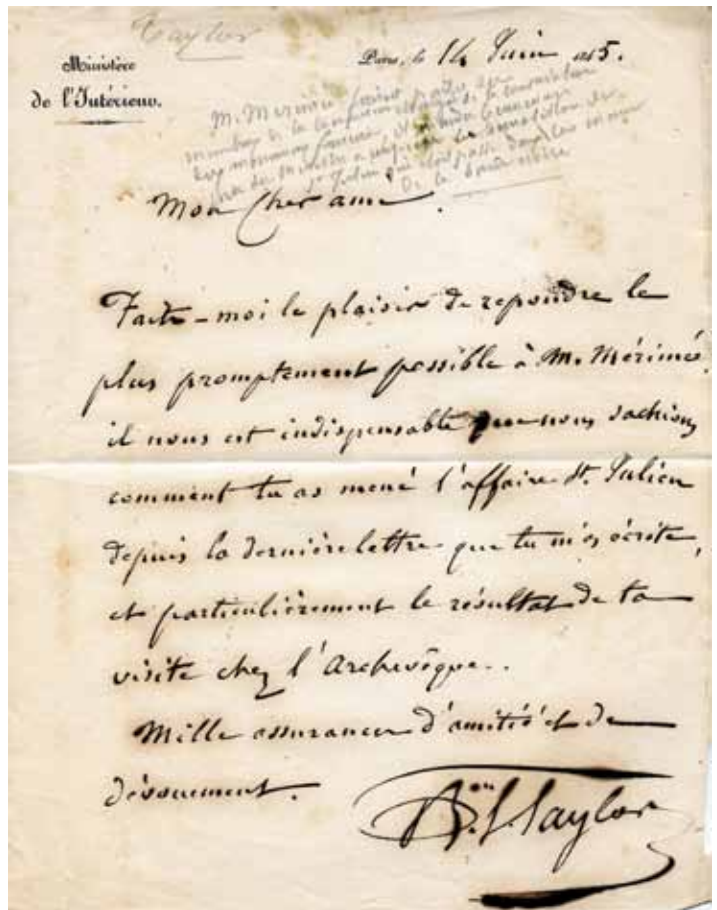 Taylor
Ministère
de l'Intérieur.
Paris, le 14 Juin 1845.
M. Mérimée
membre de la
Mon cher ami.
Faites-moi le plaisir de repondre le
plus promptement possible à M. Mérimée.
il nous est indispensable que nous sachions
comment tu as mené l'affaire St. Julien
depuis la dernière lettre que tu m'as écrite,
et particulièrement le résultat de ta
visite chez l'Archevêque..
Mille assurances d'amitié et de
dévouement.
Bon. J. Taylor